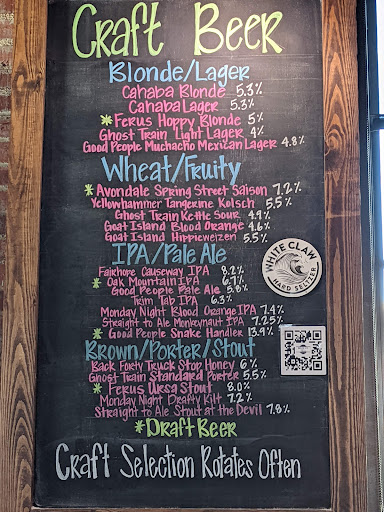 Craft Beer
Blonde/Lager
Cahaba Blonde 5.3%
Cahaba Lager 5.3%
*Ferus Hoppy Blonde 5%
Ghost Train Light Lager 4%
Good People Muchacho Mexican Lager 4.8%
Wheat/Fruity
*Avondale Spring Street Saison 7.2%
Yellowhammer Tangerine Kolsch 5.5%
Ghost Train Kettle Sour 4.9%
Goat Island Blood Orange 4.6%
Goat Island Hippieweizen 5.5%
IPA/Pale Ale
Fairhope Causeway IPA 8.2%
*Oak Mountain IPA 6.7%
Good People Pale Ale 5.6%
Trim Tab IPA 6.3%
Monday Night Blood Orange IPA 7.4%
Straight to Ale Monkeynaut IPA 7.25%
*Good People Snake Handler 13.9%
Brown/Porter/Stout
Back Forty Truck Stop Honey 6%
Ghost Train Standard Porter 5.5%
*Ferus Ursa Stout 8.0%
Monday Night Drafty Kilt 7.2%
Straight to Ale Stout at the Devil 7.8%
*Draft Beer
Craft Selection Rotates Often
WHITE CLAW
HARD SELTZER